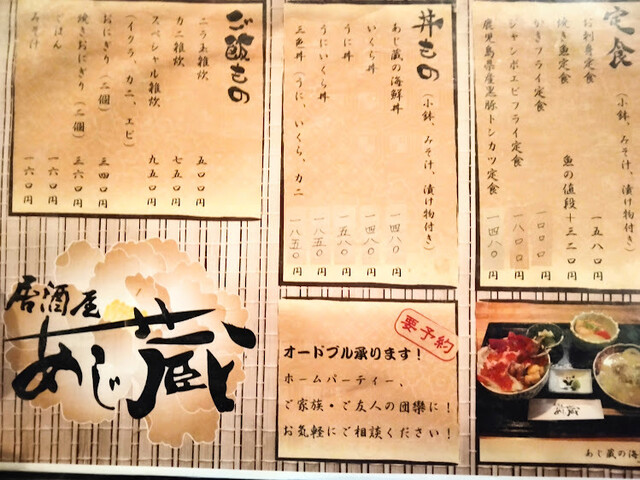 定食
（小鉢、みそ汁、漬け物付き）
お刺身定食 一五八〇円
焼き魚定食 魚の値段＋三二〇円
かきフライ定食 一〇〇〇円
ジャンボエビフライ定食 一八〇〇円
鹿児島県産黒豚トンカツ定食 一四八〇円
丼もの
（小鉢、みそ汁、漬け物付き）
あじ蔵の海鮮丼 一四八〇円
いくら丼 一四八〇円
うに丼 一八五〇円
うにいくら丼 一八五〇円
三色丼（うに、いくら、カニ 一八五〇円
ご飯もの
ニラ玉雑炊 五〇〇円
カニ雑炊 七五〇円
スペシャル雑炊 九五〇円
（イクラ、カニ、エビ）
おにぎり（二個） 三四〇円
焼きおにぎり（二個） 三六〇円
ごはん 一六〇円
みそ汁 一六〇円
居酒屋
あじ蔵
要予約
オードブル承ります！
ホームパーティー、
ご家族・ご友人の団欒に！
お気軽にご相談ください！
あじ蔵
あじ蔵の海